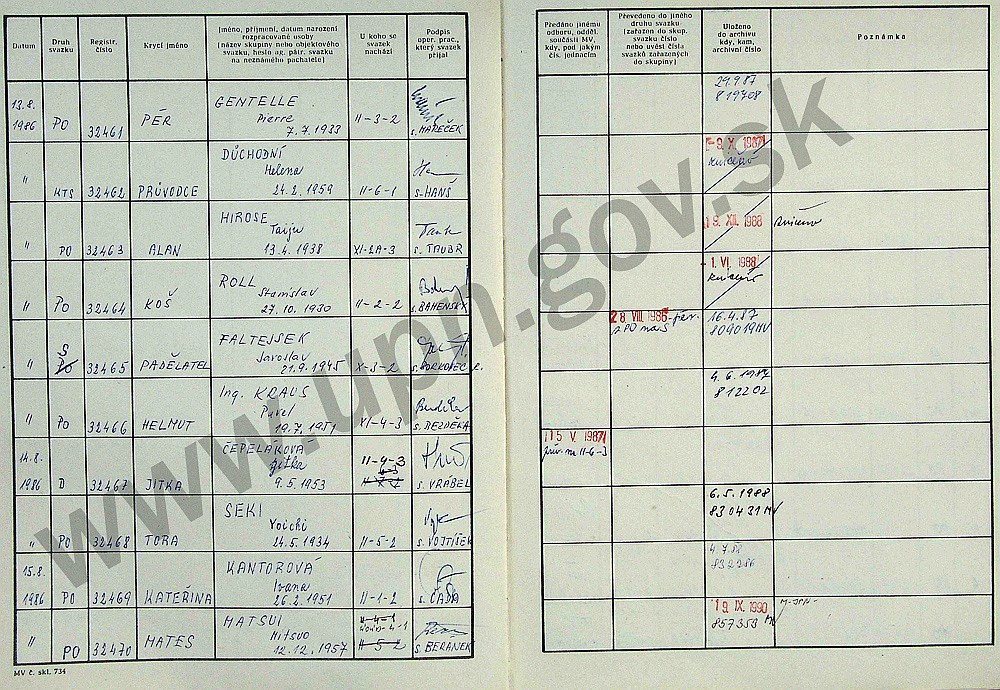 Datum
Druh svazku
Registr. číslo
Krycí jméno
Jméno, příjmení, datum narození
rozpracované osoby
(název skupiny nebo objektového
svazku, heslo ag. pátr. svazku
na neznámého pachatele)
U koho se
svazek
nachází
Podpis
oper. prac.,
který svazek
přijal
Předáno jinému
odboru, odděl.
součásti MV,
kdy, pod jakým
čís. jednacím
Převedeno do jiného
druhu svazku
(zařazen do skup.
svazku číslo
nebo uvést čísla
svazků zařazených
do skupiny)
Uloženo
do archivu
kdy, kam,
archivní číslo
Poznámka
13.8.
1986 PO 32461 PÉR
GENTELLE
Pierre
7.7.1933
II-3-2
s. MAREČEK
29.9.87
819708
" KTS 32462 PRŮVODCE
DŮCHODNÍ
Helena
24.2.1959
II-6-1
s. HANŠ
-9. X. 1987
" PO 32463 ALAN
HIROSE
Taiju
13.4.1938
XI-2A-3
s. TAUBR
19. XII. 1988
zničeno
" PO 32464 KOŠ
ROLL
Stanislav
27.10.1930
II-2-2
s. BAHENSKÝ
-1. VI. 1988
" S
PO 32465 PADĚLATEL
FALTEJSEK
Jaroslav
21.9.1945
X-3-2
28. VIII. 1986
z PO na S
16.4.87
809019MV
" PO 32466 HELMUT
Ing. KRAUS
Pavel
19.7.1951
XI-4-3
s. BEZDĚKA
4.6.1987
812202
14.8.
1986 D 32467 JITKA
ČEPELÁKOVÁ
Jitka
9.5.1953
II-4-3
s. VRÁBEL
15. V. 1987
na II-6-3
" PO 32468 TORA
SEKI
Yoichi
24.5.1934
II-5-2
s. VOJTÍŠEK
6.5.1988
830431 MV
15.8.
1986 PO 32469 KATEŘINA
KANTOROVA
Ivana
26.2.1951
II-1-2
s. ČADA
4.7.88
832286
" PO 32470 MATES
MATSUI
Mitsuo
12.12.1957
II-5-2
s. BERANEK
19. IX. 1990
857353 MV
MV č. skl. 734
www.upn.gov.sk